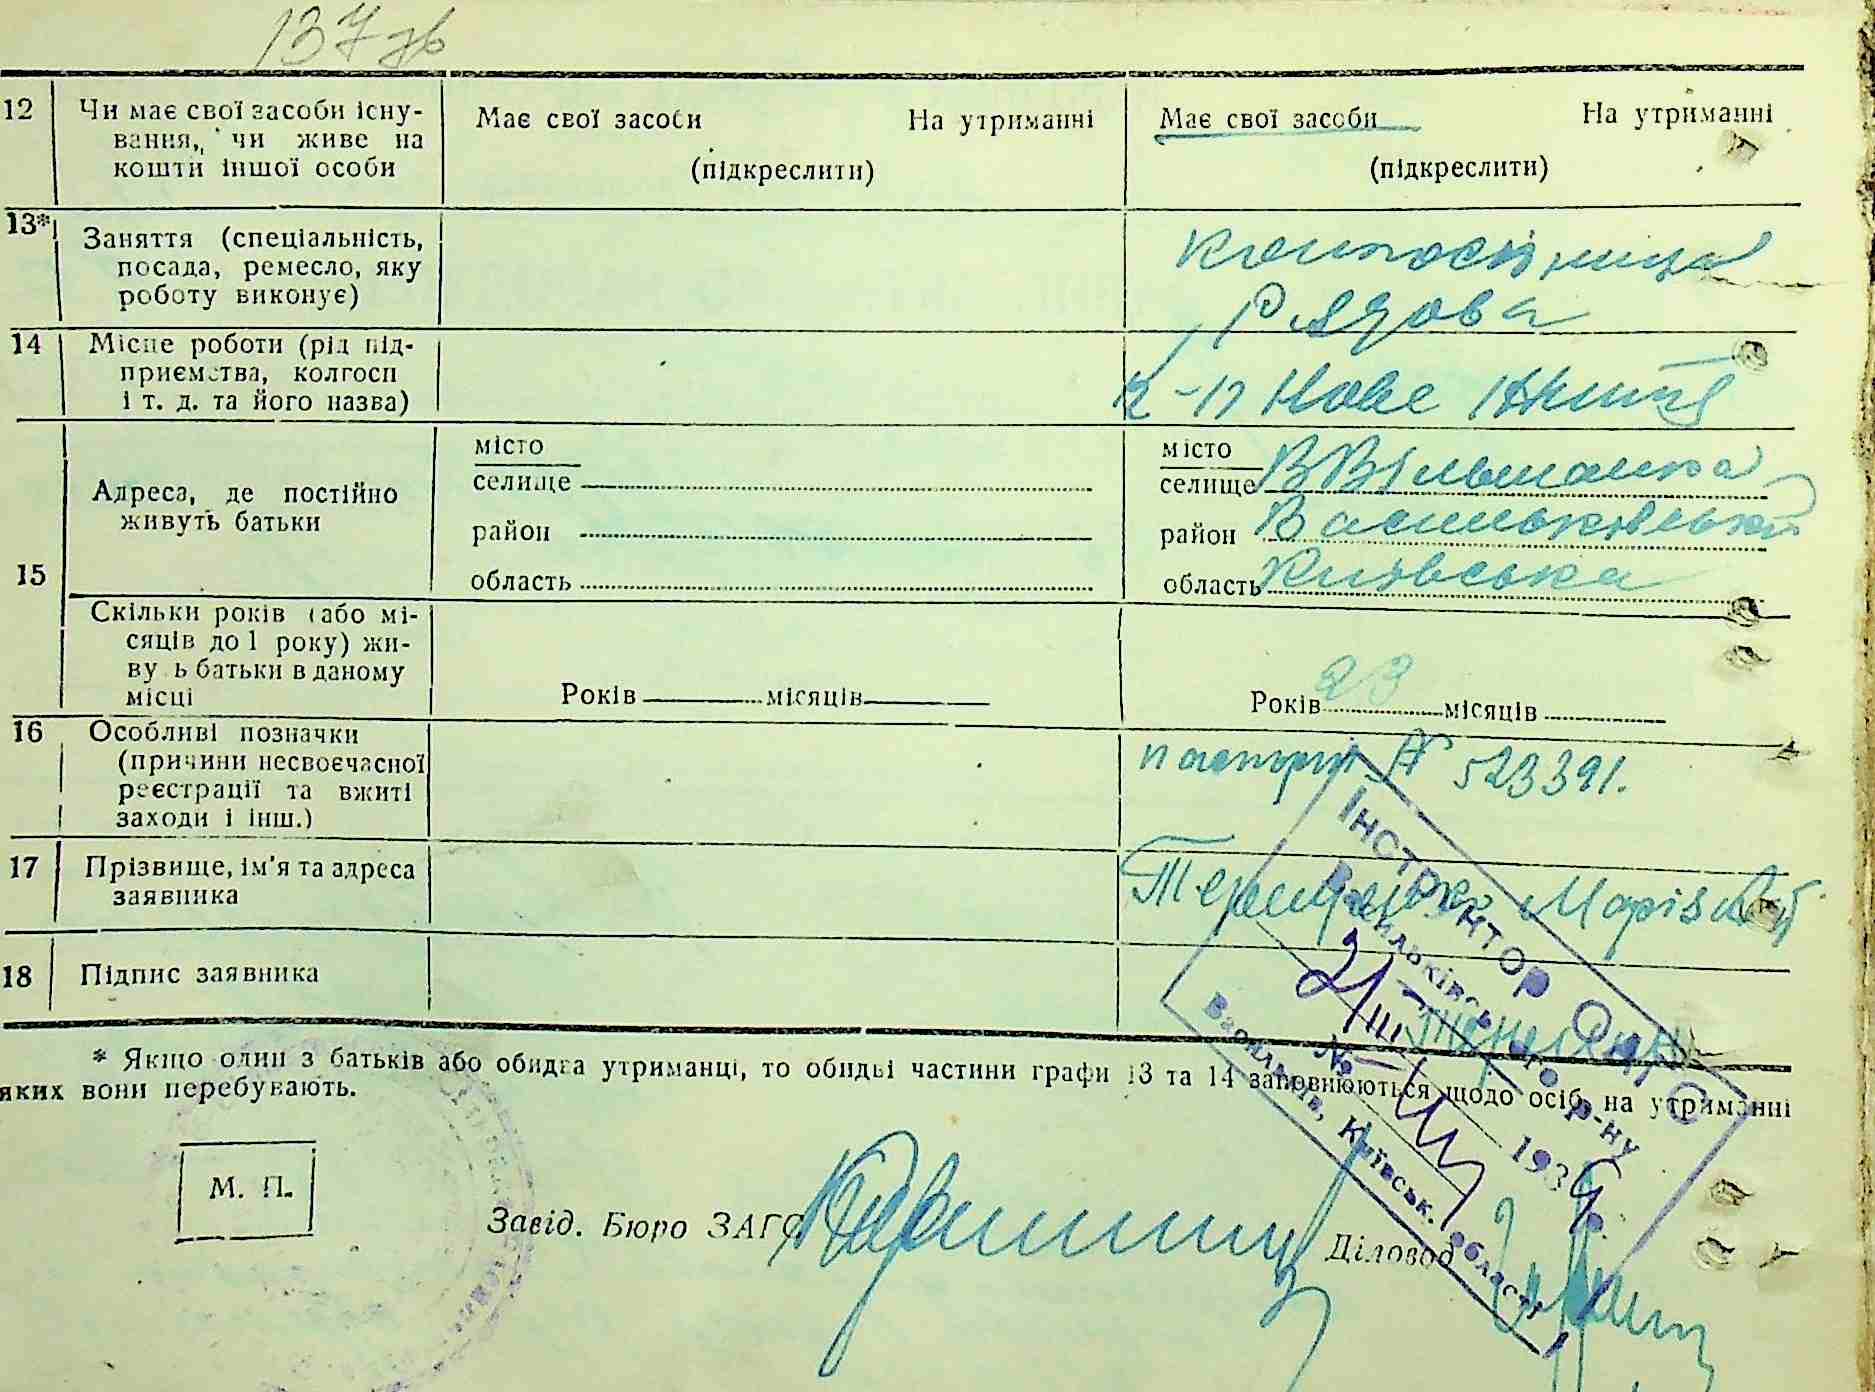 137 зв
12 Чи має свої засоби існу-
вання, чи живе на
кошти іншої особи
Має свої засоби На утриманні
(підкреслити)
Має свої засоби На утриманні
(підкреслити)
13* Заняття (спеціальність,
посада, ремесло, яку
роботу виконує)
колгоспниця
Рядова
14 Місце роботи (рід під-
приємства, колгосп
і т. д. та його назва)
к-п Нове Життя
15 Адреса, де постійно
живуть батьки
місто
селище
район
область
місто
селище В Вільшанка
район Васильківський
область Київська
Скільки років (або мі-
сяців до 1 року) жи-
ву ь батьки в даному
місці
Років місяців
Років 23 місяців
16 Особливі позначки
(причини несвоєчасної
реєстрації та вжиті
заходи і інш.)
паспорт № 523391.
17 Прізвище, ім'я та адреса
заявника
18 Підпис заявника
* Якщо один з батьків або обидва утриманці, то обидві частини графи 13 та 14 заповнюються щодо осіб, на утриманні
яких вони перебувають.
М. П.
Завід. Бюро ЗАГС
Діловод
Інструктор ОАГС
Васильківського р-ну
№ 193
Васильків, Київськ. області